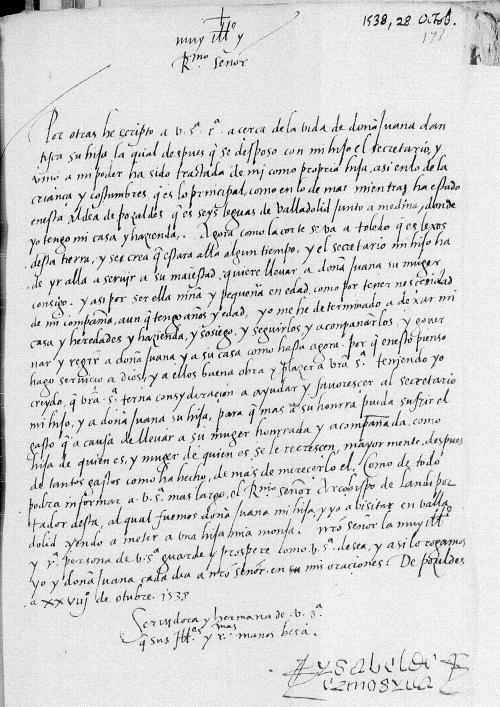 1538, 28 Octob.
171
muy Ill.e y
R.mo señor
Por otras he scripto a v. s.a r.a acerca de la vida de doña Juana dan
tisca su hija la qual despues q̃ se desposo con mi hijo el secretario, y
vino a mi poder ha sido tractada de mi como propria hija, asi en lo de la
criança y costumbres q̃ es lo principal, como en lo de mas mientras ha estado
en esta Aldea de pozaldes q̃ es seys leguas de Valladolid junto a medina, donde
yo tengo mi casa y hazienda. Agora como la corte se va a toledo q̃ es lexos
desta tierra, y se crea q̃ estara alla algun tiempo, y el secretario mi hijo ha
de yr alla a servir a su maiestad, quiere lleuar a doña Juana su muger
consigo. y asi por ser ella niña y pequeña en edad, como por tener nescesidad
de mi compañia, aun q̃ tengo años y edad, yo me he determinado a dexar mi
casa y heredades y hazienda, y sosiego, y seguirlos y acompañarlos, y gover
nar y regir a doña Juana y a su casa como hasta agora. por q̃ en esto pienso
hago servicio a dios, y a ellos buena obra y plazer a vr̃a s.a teniendo yo
creydo, q̃ vr̃a s.a terna consyderaçion a ayudar y favorescer al secretario
mi hijo, y a doña Juana su hija, para q̃ mas a su honrra pueda sufrir el
gasto q̃ a causa de lleuar a su muger honrrada y acompañada, como
hija de quien es, y muger de quien es, se le recrescen, mayor mente, despues
de tantos gastos como ha hecho, de mas de merecerlo el. Como de todo
podra informar a v. s. mas largo, el R.mo señor Arcobispo de landi por
tador desta, al qual fuemos doña Juana mi hija, y yo a visitar en valla
dolid yendo a meter a una hija mia monja. nr̃o señor la muy Ill.e
y r.a persona de v. s.a guarde y prospere como v. s.a desea, y asi lo rogamos
yo y doña Juana cada dia a nr̃o señor en mi oraciones. De pozaldes
a xxviij de otubre. 1538
Servidora y hermana de v. s.a
q̃ sus Ill.es y r.mas manos besa.
ysabel de